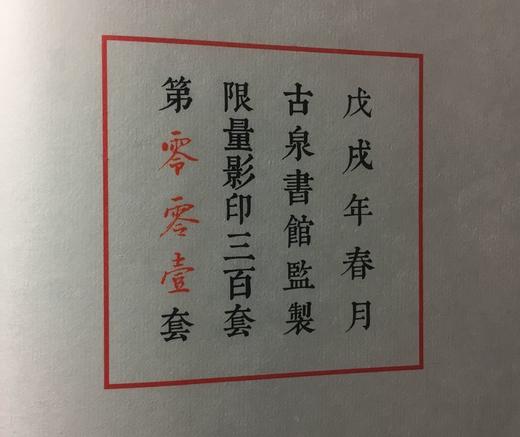 戊戌年春月
古泉書館監製
限量影印三百套
第零零壹套